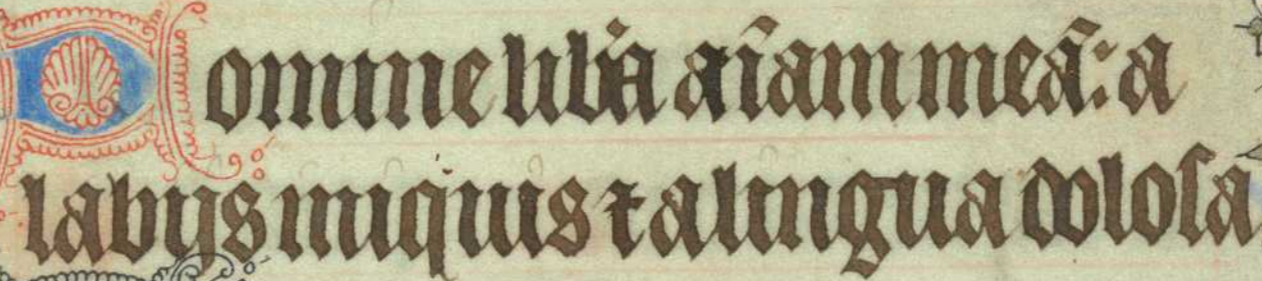 Domine lib̄a aīam meā: a
labijs iniquis ⁊ a lingua dolosa